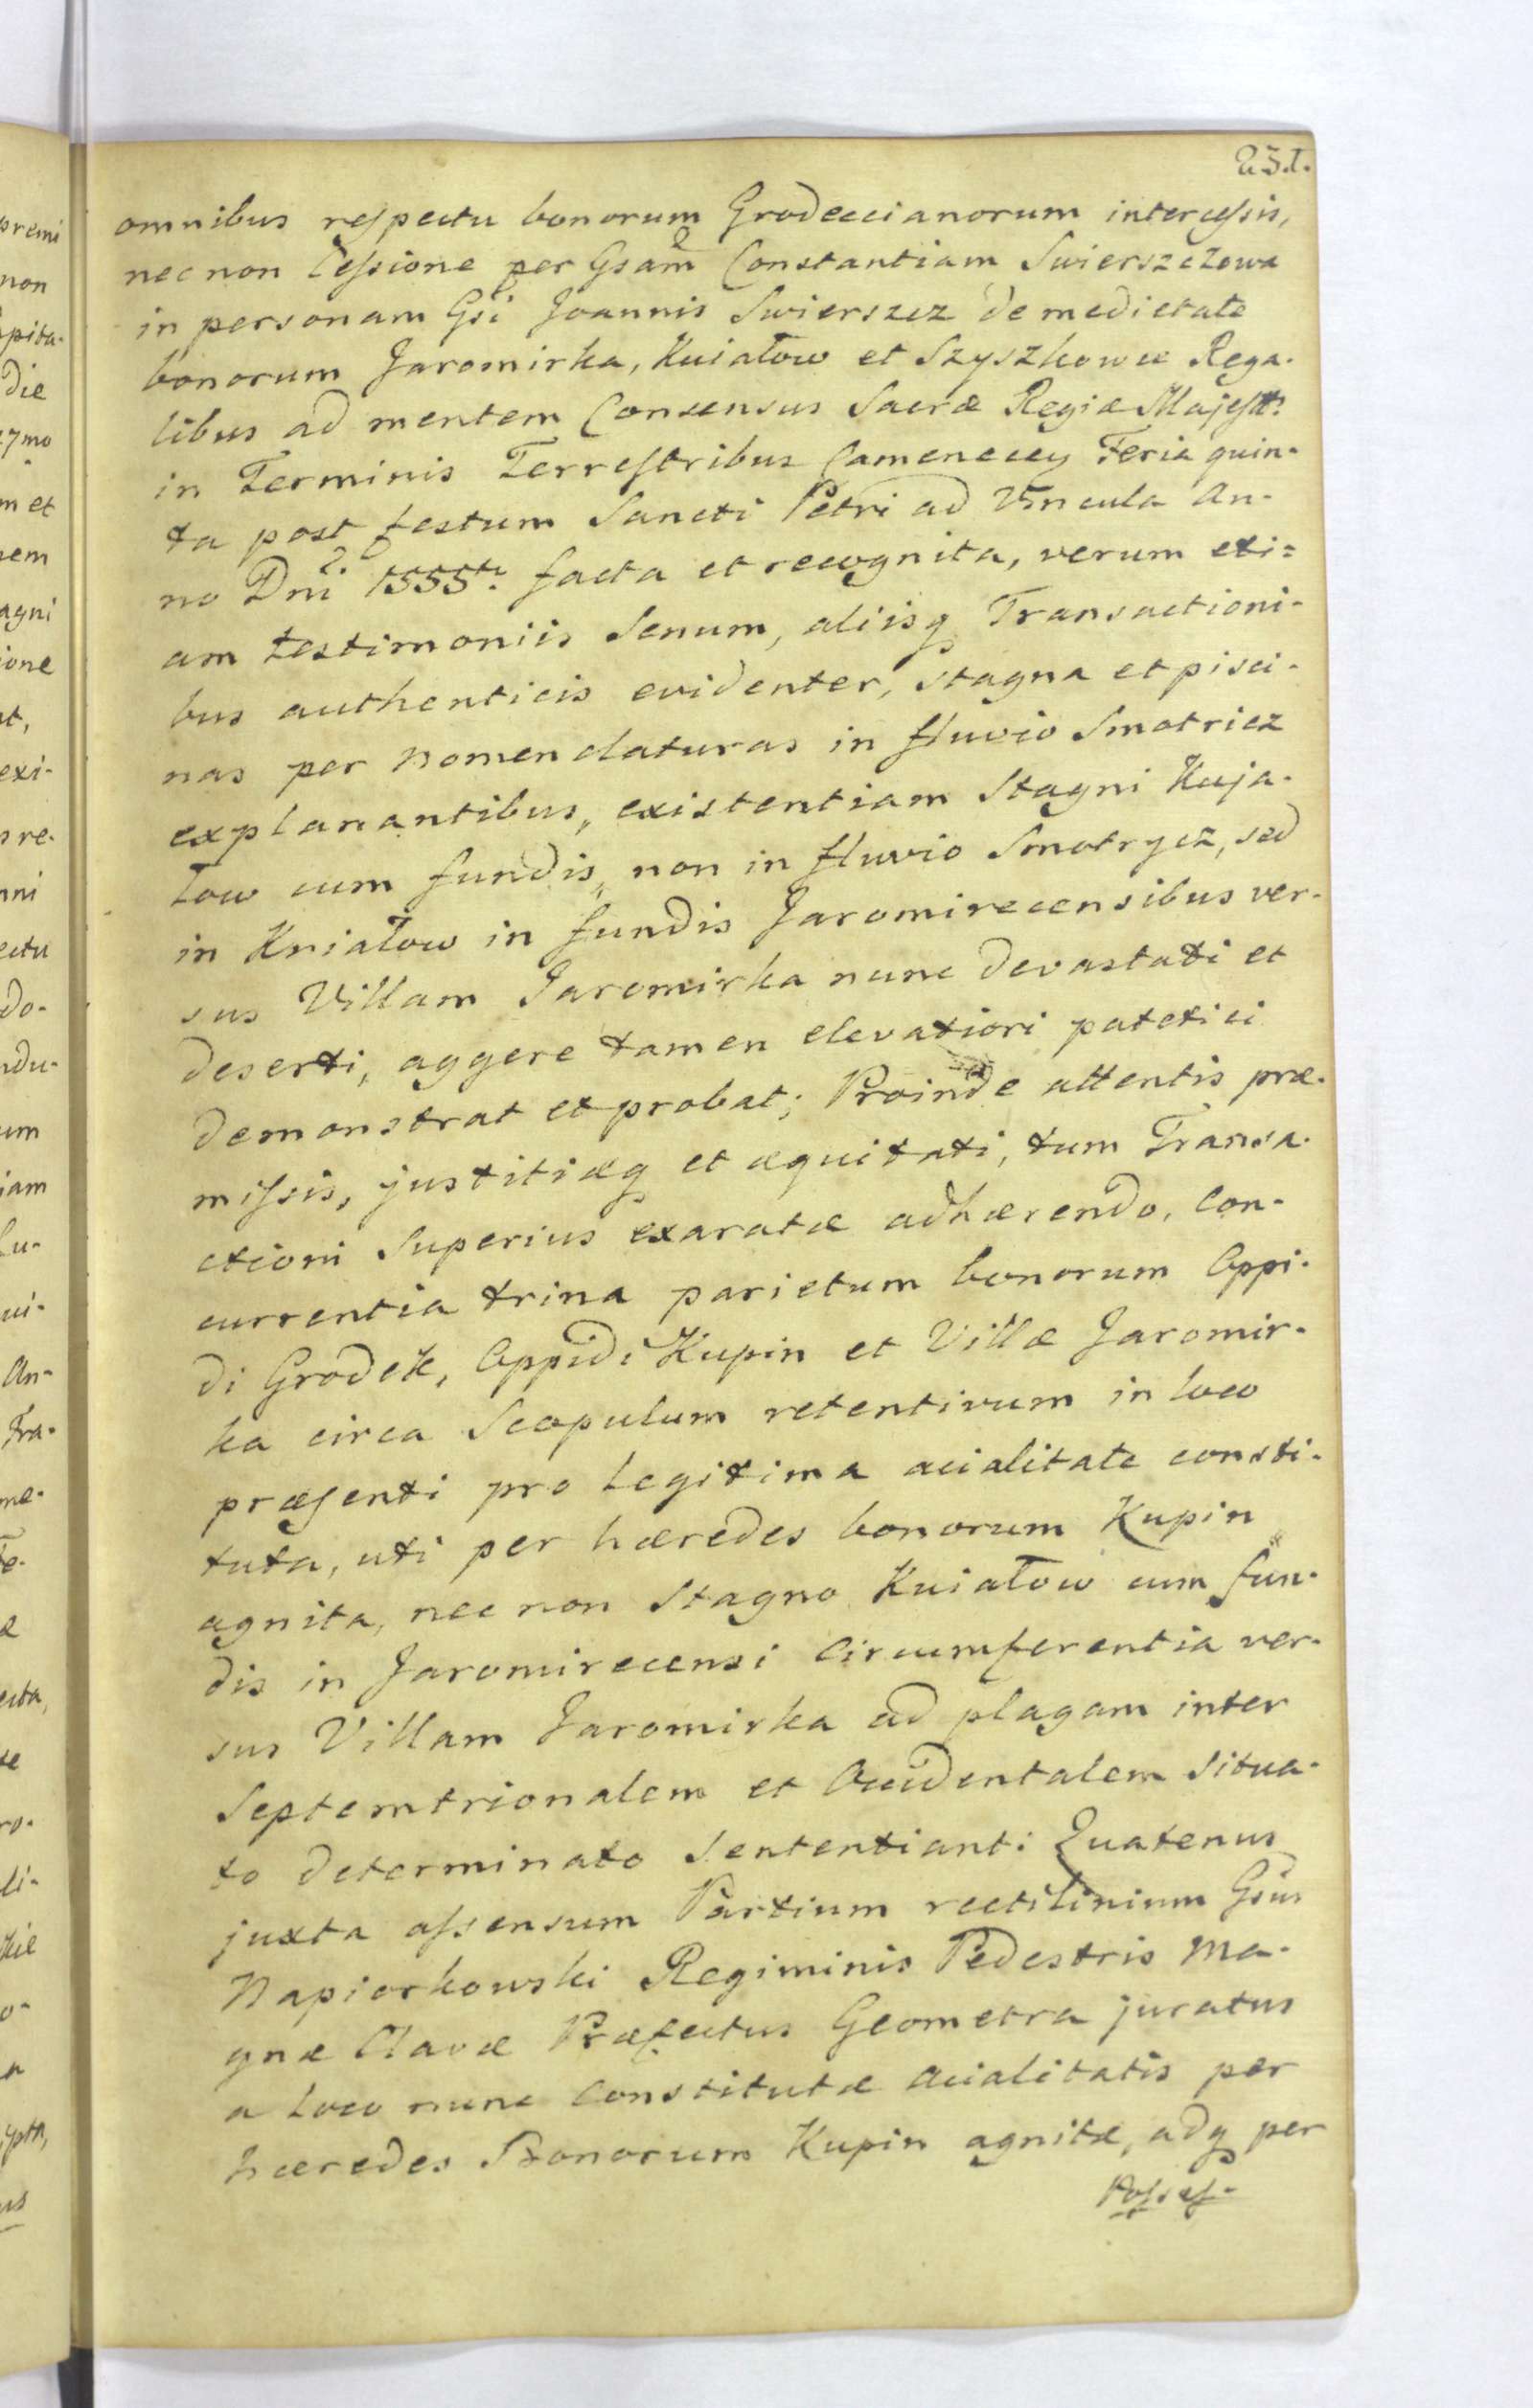 231.
omnibus respectu bonorum Grodeccianorum intercessis,
nec non Cessione per Gsam Constantiam Swierszczowa
in personam Gsi Joannis Swierszcz de medietate
bonorum Jaromirka, Kuiatow et Szyszkowce Rega-
libus ad mentem Consensus Sacræ Regiæ Majestt:
in Terminis Terrestribus Camenecen Feria quin-
ta post festum Sancti Petri ad Vincula An-
no Dni 1555ti facta et recognita, verum eti=
am testimoniis Senum, aliisq Transactioni-
bus authenticis evidenter, stagna et pisci-
nas per nomenclaturas in fluvio Smotricz
explanantibus, existentiam Stagni Kuja-
tow cum fundis, non in fluvio Smotrycz, sed
in Kniatow in fundis Jaromireccensibus ver-
sus Villam Jaromirka nunc devastati et
deserti, aggere tamen elevatiori patetici
demonstrat et probat; Proinde attentis præ-
missis, justitiæq et æquitati, tum Transa-
ctioni Superius exaratæ adhærendo, Con-
currentia trina parietum bonorum Oppi-
di Grodek, Oppidi Kupin et Villæ Jaromir-
ka circa Scopulum retentivum in loco
præsenti pro legitima acialitate consti-
tuta, uti per hæredes bonorum Kupin
agnita, nec non Stagno Kuiatow cum fun-
dis in Jaromireccensi Circumferentia ver-
sus Villam Jaromirka ad plagam inter
Septemtrionalem et Occidentalem situa-
to determinato Sententiant: Quatenus
juxta assensum Partium rectilinium Gsus
Napiorkowski Regiminis Pedestris Ma-
gnæ Clavæ Præfectus Geometra juratus
a loco nunc Constitutæ Acialitatis per
hæredes Bonorum Kupin agnitæ, adq per
Posses-